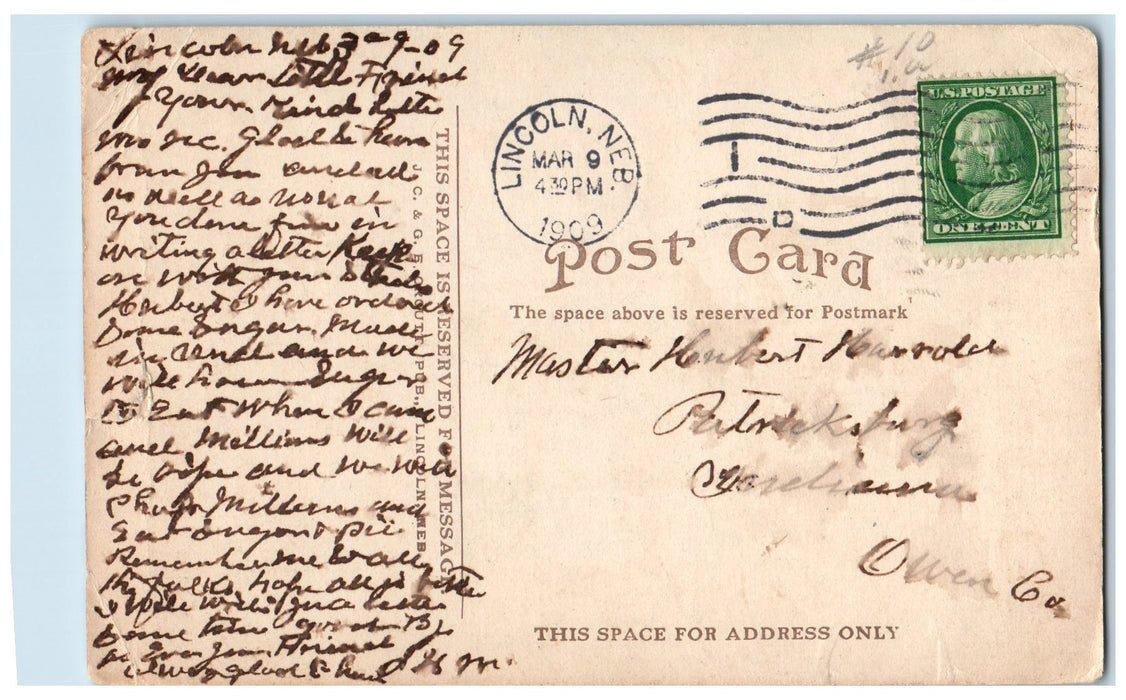 Lincoln Neb 3-9-09
My Dear Little Friend
Your Kind letter
was rec. Glad to hear
from you and all
is well as usual
You done fine in
writing a letter Keep
on with your
Hubert I have ordered
Some Sugar Made
and we
will have Sugar
to Eat When I come
and Millions Will
be ripe and we will
Millions and
Eat Sugar & Pie
Remember me to all
the folks hope all is better
I will write you a letter
Some time good By
as Ever your Friend
always glad to hear H M.
THIS SPACE IS RESERVED FOR MESSAGE
LINCOLN, NEB.
# 10
LINCOLN, NEB.
MAR 9
4 30 PM
1909
U.S. POSTAGE
ONE CENT
Post Card
The space above is reserved for Postmark
Master Hubert Harrold
Patricksburg
Indiana
Owen Co
THIS SPACE FOR ADDRESS ONLY